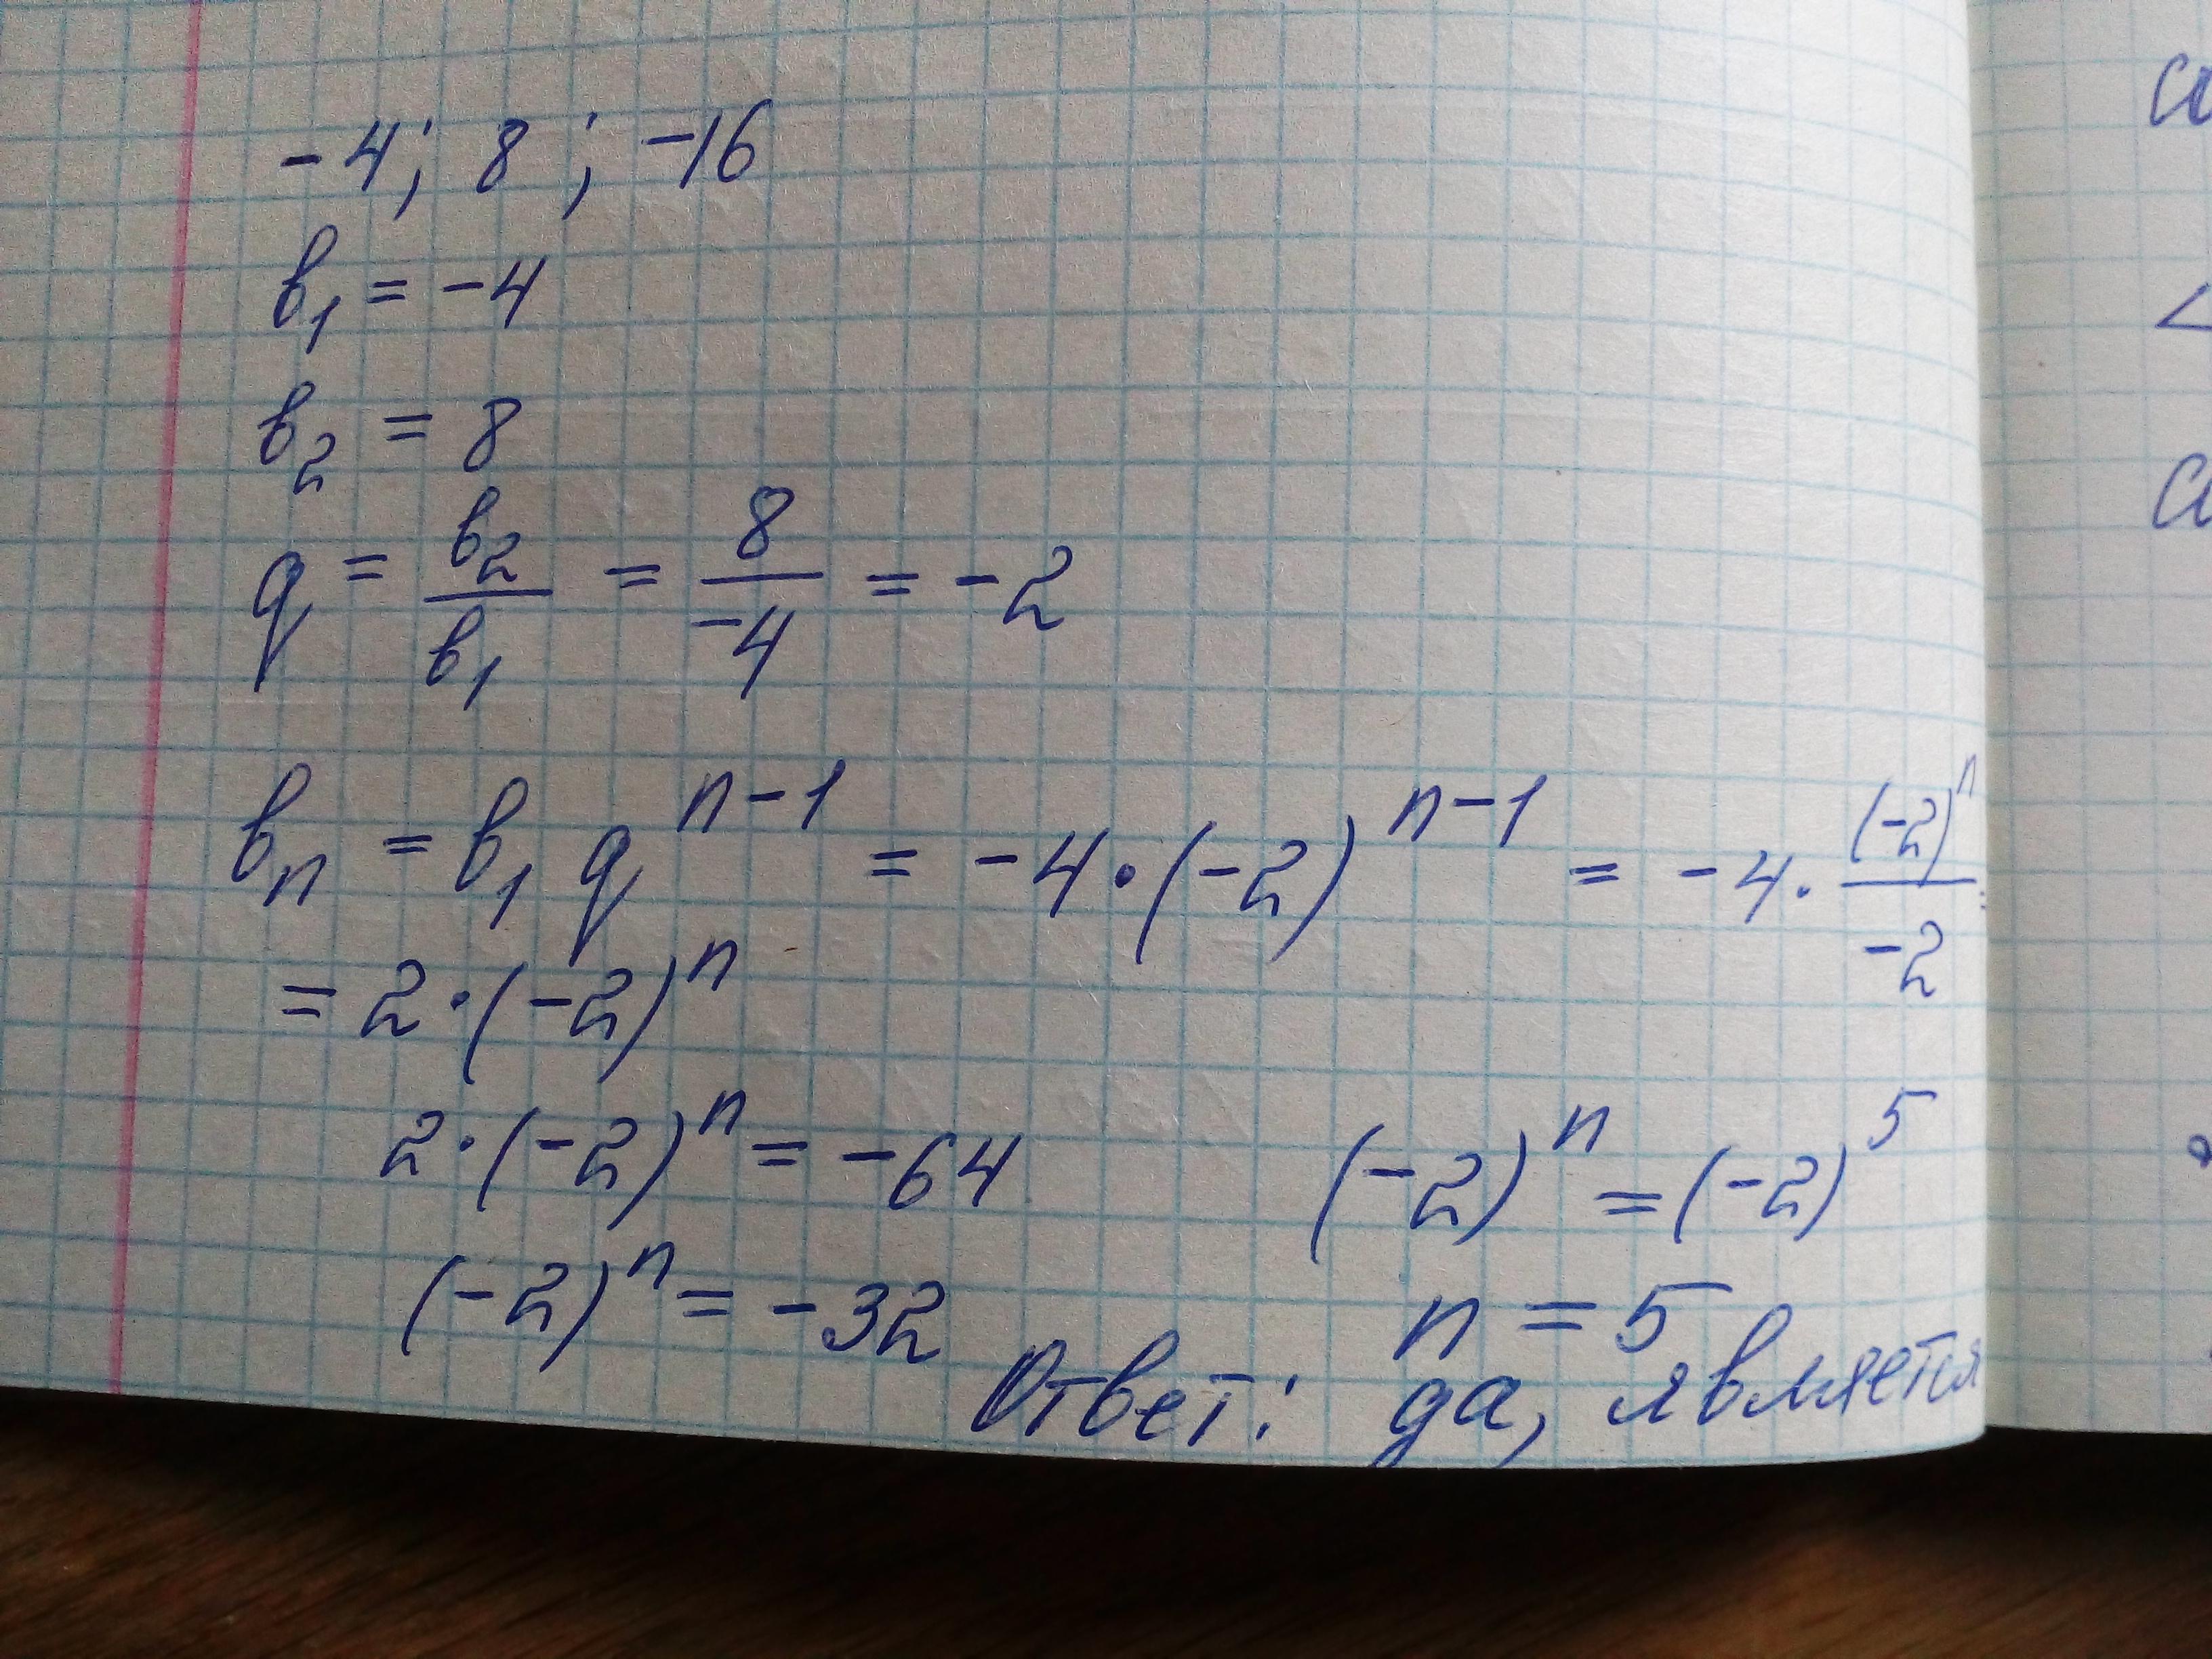 -4; 8; -16
b₁ = -4
b₂ = 8
q = b₂/b₁ = 8/-4 = -2
bₙ = b₁ qⁿ⁻¹ = -4·(-2)ⁿ⁻¹ = -4·(-2)ⁿ/-2 =
= 2·(-2)ⁿ
2·(-2)ⁿ = -64
(-2)ⁿ = -32
(-2)ⁿ = (-2)⁵
n = 5
Ответ: да, является